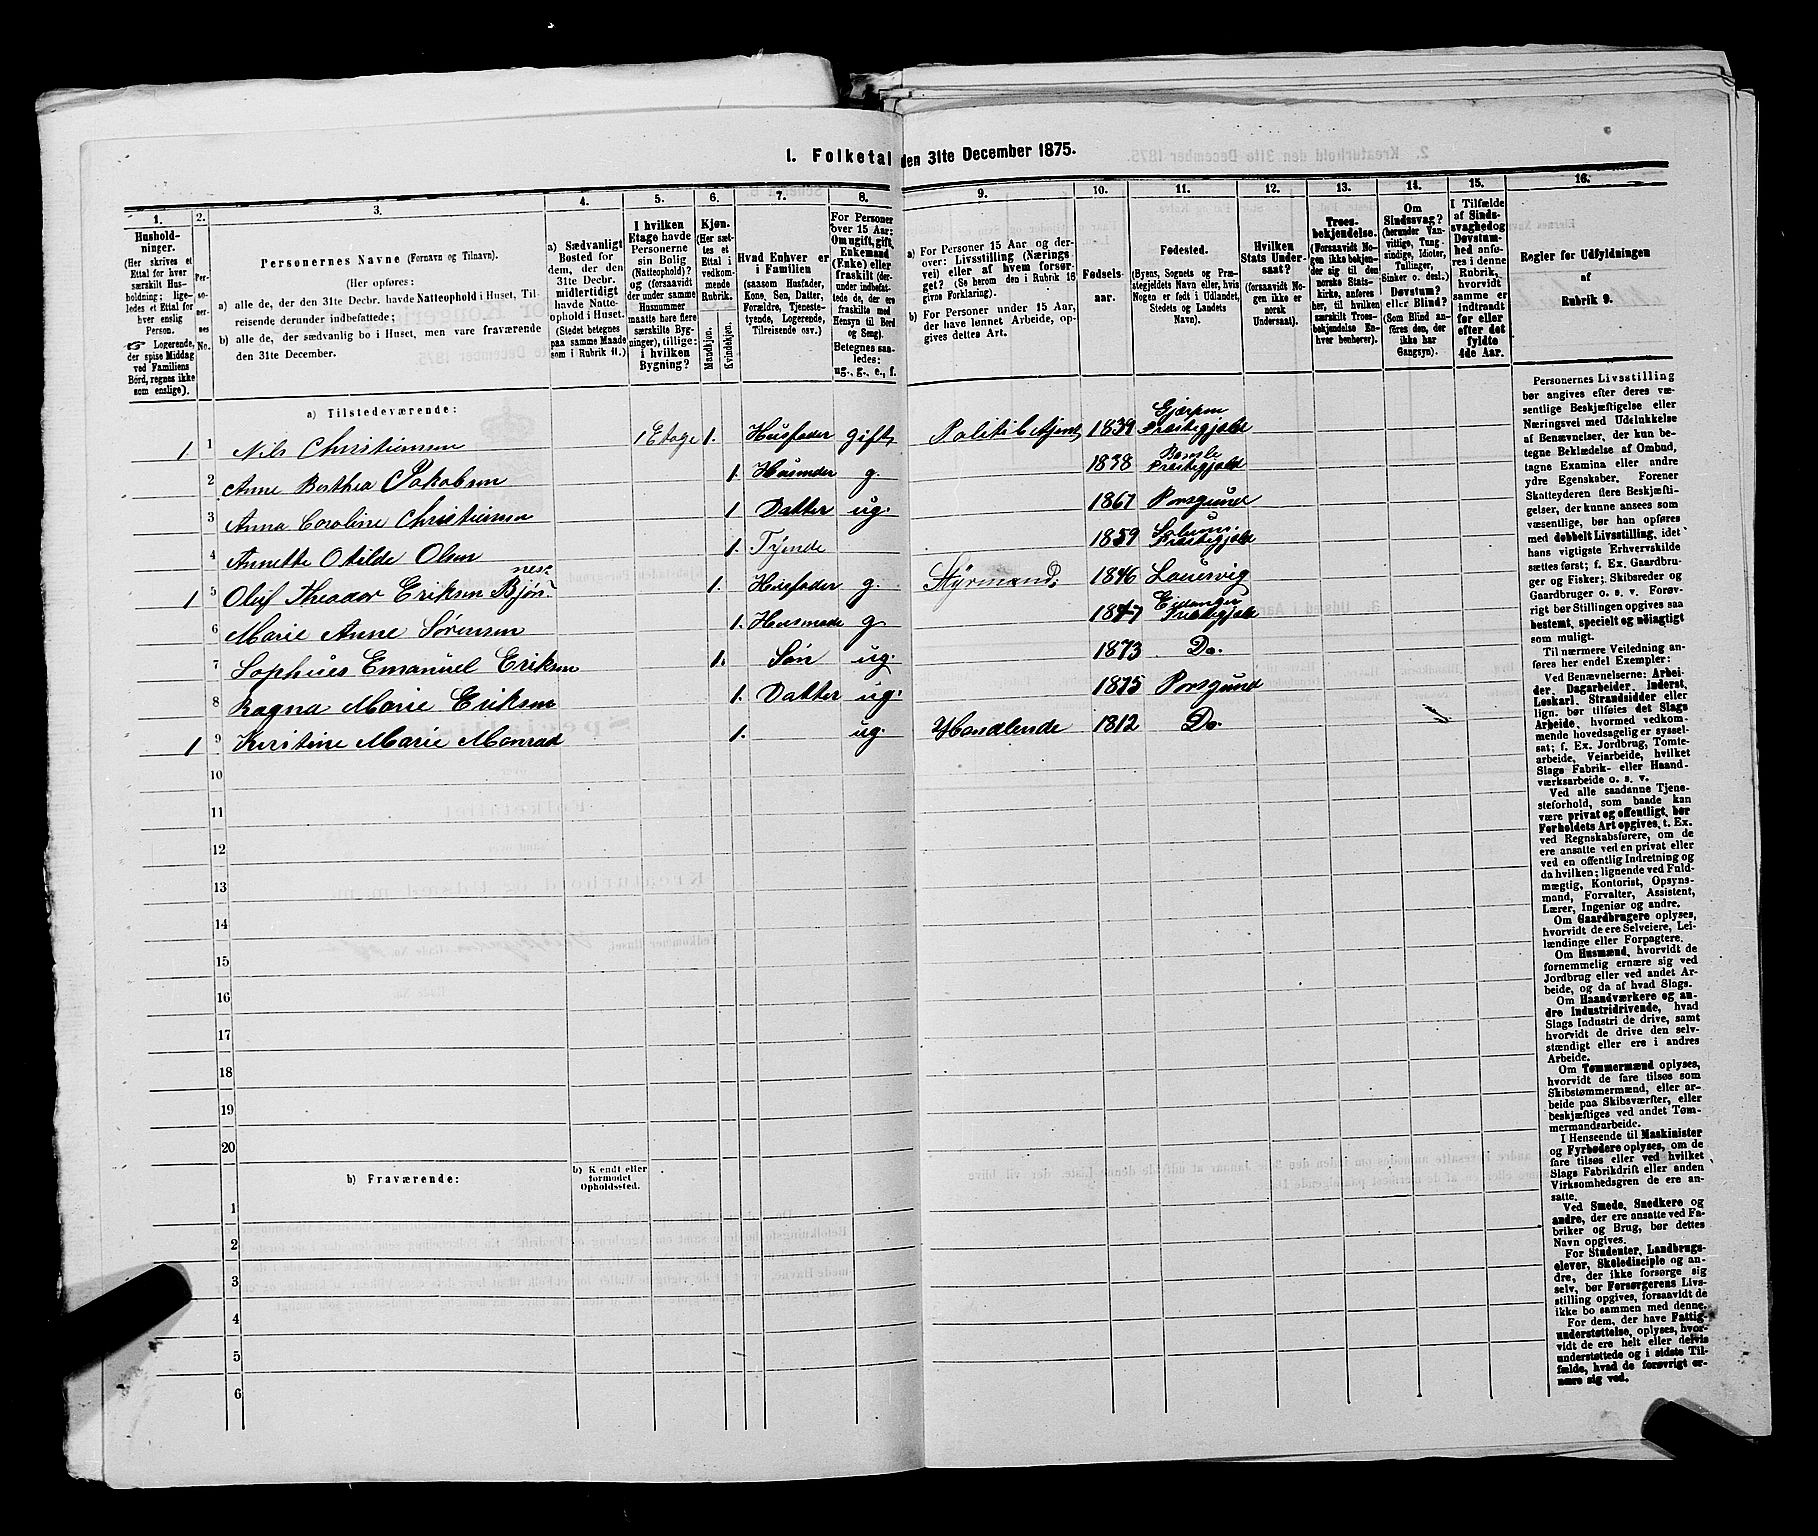 I. Folketal den 31te December 1875.
1. 2. 3. 4. 5. 6. 7. 8. 9. 10. 11. 12. 13. 14. 15. 16.
Husholdninger.
(Her skrives et
Ettal for hver
særskilt Hus-
holdning; lige-
ledes et Ettal for
hver enslig
Person.
☞ Logerende,
der spise Middag
ved Familiens
Bord, regnes ikke
som enslige).
Per-
so-
ner-
nes
No.
Personernes Navne (Fornavn og Tilnavn).
(Her opføres:
a) alle de, der den 31te Decbr. havde Natteophold i Huset, Til-
reisende derunder indbefattede;
b) alle de, der sædvanlig bo i Huset, men vare fraværende
den 31te December.
a) Sædvanligt
Bosted for
dem, der den
31te Decbr.
midlertidigt
havde Natte-
ophold i Huset.
(Stedet betegnes
paa samme Maade
som i Rubrik 11.)
I hvilken
Etage havde
Personerne
sin Bolig
(Natteophold)?
og (forsaavidt
der under samme
Husnummer
maatte høre flere
særskilte Byg-
ninger), tillige:
i hvilken
Bygning?
Kjøn.
(Her sæt-
tes et
Ettal i
vedkom-
mende
Rubrik.
Mandkjøn.
Kvindekjøn.
Hvad Enhver er
i Familien
(saasom Husfader,
Kone, Søn, Datter,
Forældre, Tjeneste-
tyende, Logerende,
Tilreisende osv.)
For Personer
over 15 Aar:
Om ugift, gift,
Enkemand
(Enke) eller
fraskilt (der-
under indbefat-
tede de, der ere
fraskilte med
Hensyn til Bord
og Seng).
Betegnes saa-
ledes:
ug., g., e., f.
a) For Personer 15 Aar og der-
over: Livsstilling (Nærings-
vei) eller af hvem forsør-
get? (Se herom den i Rubrik 16
givne Forklaring).
b) For Personer under 15 Aar,
der have lønnet Arbeide, op-
gives dettes Art.
Fødsels-
aar.
Fødested.
(Byens, Sognets og Præ-
stegjeldets Navn eller, hvis
Nogen er født i Udlandet,
Stedets og Landets
Navn).
Hvilken
Stats Under-
saat?
(forsaavidt No-
gen ikke er
norsk
Undersaat).
Troes-
bekjendelse.
(Forsaavidt No-
gen ikke bekjen-
der sig til den
norske Stats-
kirke, anføres
her, til hvilken
særskilt Troes-
bekjendelse En-
hver henhører).
Om
Sindssvag?
(herunder Van-
vittige, Tung-
sindige, Idioter,
Tullinger,
Sinker o. desl.)
Døvstum?
eller Blind?
(Som Blind an-
føres den, der
ikke har
Gangsyn).
I Tilfælde
af Sinds-
svaghed og
Døvstum-
hed anfø-
res i denne
Rubrik,
hvorvidt
samme er
indtraadt
før eller
efter det
fyldte
4de Aar.
Regler for Udfyldningen
af
Rubrik 9.
a) Tilstedeværende:
1 1 Nils Christiansen 1 Etage 1. Husfader gift Politibetjent 1839 Gjærpen Præstegjeld
2 Anne Berthea Jakobsen 1. Husmoder g. 1838 Bamble Præstegjeld
3 Anna Caroline Christiansen 1 Datter ug. 1861 Porsgrund
4 Annette Otilde Olsen 1. Tyende 1859 Præstegjeld
1 5 Oluf Theodor Eriksen Bjønnes 1. Husfader g. Styrmand 1846 Laurvig
6 Marie Anne Sørensen 1. Husmode g 1847 Eidanger Præstegjeld
7 Sophus Emanuel Eriksen 1. Søn ug. 1873 Do.
8 Ragna Marie Eriksen 1. Datter ug. 1875 Porsgrund
1 9 Kirstine Marie Monrad 1. ug. Handlende 1812 Do.
10
11
12
13
14
15
16
17
18
19
20
b) Fraværende:
b) Kjendt eller
formodet
Opholdssted.
1
2
3
4
5
6
Personernes Livsstilling
bør angives efter deres væ-
sentlige Beskjæftigelse eller
Næringsvei med Udelukkelse
af Benævnelser, der kun be-
tegne Beklædelse af Ombud,
tagne Examina eller andre
ydre Egenskaber. Forener
Skatteyderen flere Beskjæfti-
gelser, der kunne ansees som
væsentlige, bør han opføres
med dobbelt Livsstilling, idet
hans vigtigste Erhvervskilde
sættes først; f. Ex. Gaardbru-
ger og Fisker; Skibsreder og
Gaardbruger o. s. v. Forøv-
rigt bør Stillingen opgives saa
bestemt, specielt og nøiagtigt
som muligt.
Til nærmere Veiledning an-
føres her endel Exempler:
Ved Benævnelserne: Arbei-
der, Dagarbeider, Inderst,
Løskarl, Strandsidder eller
lign. bør tilføies det Slags
Arbeide, hvormed vedkom-
mende hovedsagelig er syssel-
sat; f. Ex. Jordbrug, Tomte-
arbeide, Veiarbeide, hvilket
Slags Fabrik- eller Haand-
værksarbeide o. s. v.
Ved alle saadanne Tjene-
steforhold, som baade kan
være privat og offentligt, bør
Forholdets Art opgives, t. Ex.
ved Regnskabsførere, om de
ere ansatte ved en privat eller
ved en offentlig Indretning og
da hvilken; lignende ved Fuld-
mægtig, Kontorist, Opsyns-
mand, Forvalter, Assistent,
Lærer, Ingeniør og andre.
Om Gaardbrugere oplyses,
hvorvidt de ere Selveiere, Lei-
lændinge eller Forpagtere.
Om Husmænd, hvorvidt de
fornemmelig ernære sig ved
Jordbrug eller ved andet Ar-
beide, og da af hvad Slags.
Om Haandværkere og an-
dre Industridrivende, hvad
Slags Industri de drive, samt
hvorvidt de drive den selv-
stændigt eller ere i andres
Arbeide.
Om Tømmermænd oplyses,
hvorvidt de fare tilsøs som
Skibstømmermænd, eller ar-
beide paa Skibsværfter, eller
beskjæftiges ved andet Tøm-
mermandsarbeide.
I Henseende til Maskinister
og Fyrbødere oplyses, om de
fare tilsøs eller ved hvilket
Slags Fabrikdrift eller anden
Virksomhedsgren de ere an-
satte.
Ved Smede, Snedkere og
andre, der ere ansatte ved Fa-
briker og Brug, bør dettes
Navn opgives.
For Studenter, Landbrugs-
elever, Skoledisciple og an-
dre, der ikke forsørge sig
selv, bør Forsørgerens Livs-
stilling opgives, forsaavidt de
ikke bo sammen med denne.
For dem, der have Fattig-
understøttelse, oplyses, hvor-
vidt de ere helt eller delvis
understøttede og i sidste Til-
fælde, hvad de forøvrigt er-
nære sig ved.